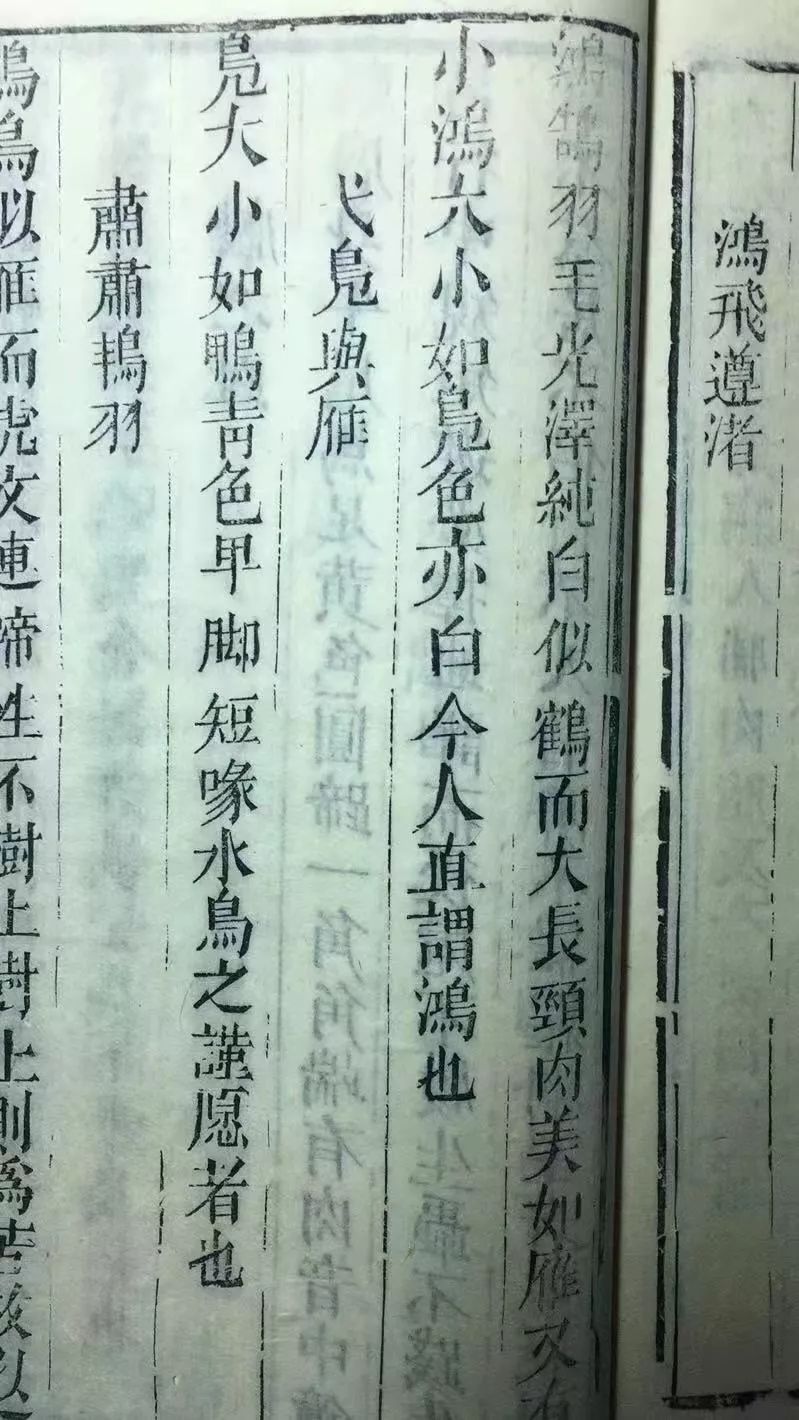 鴻飛遵渚
鴻鵠羽毛光澤純白似鶴而大長頸肉美如雁又有
小鴻大小如鳬色亦白今人直謂鴻也
弋鳬與雁
鳬大小如鴨青色卑脚短喙水鳥之謹愿者也
肅肅鴇羽
鴇鳥似雁而虎文連蹄性不樹止樹止則爲苦故以